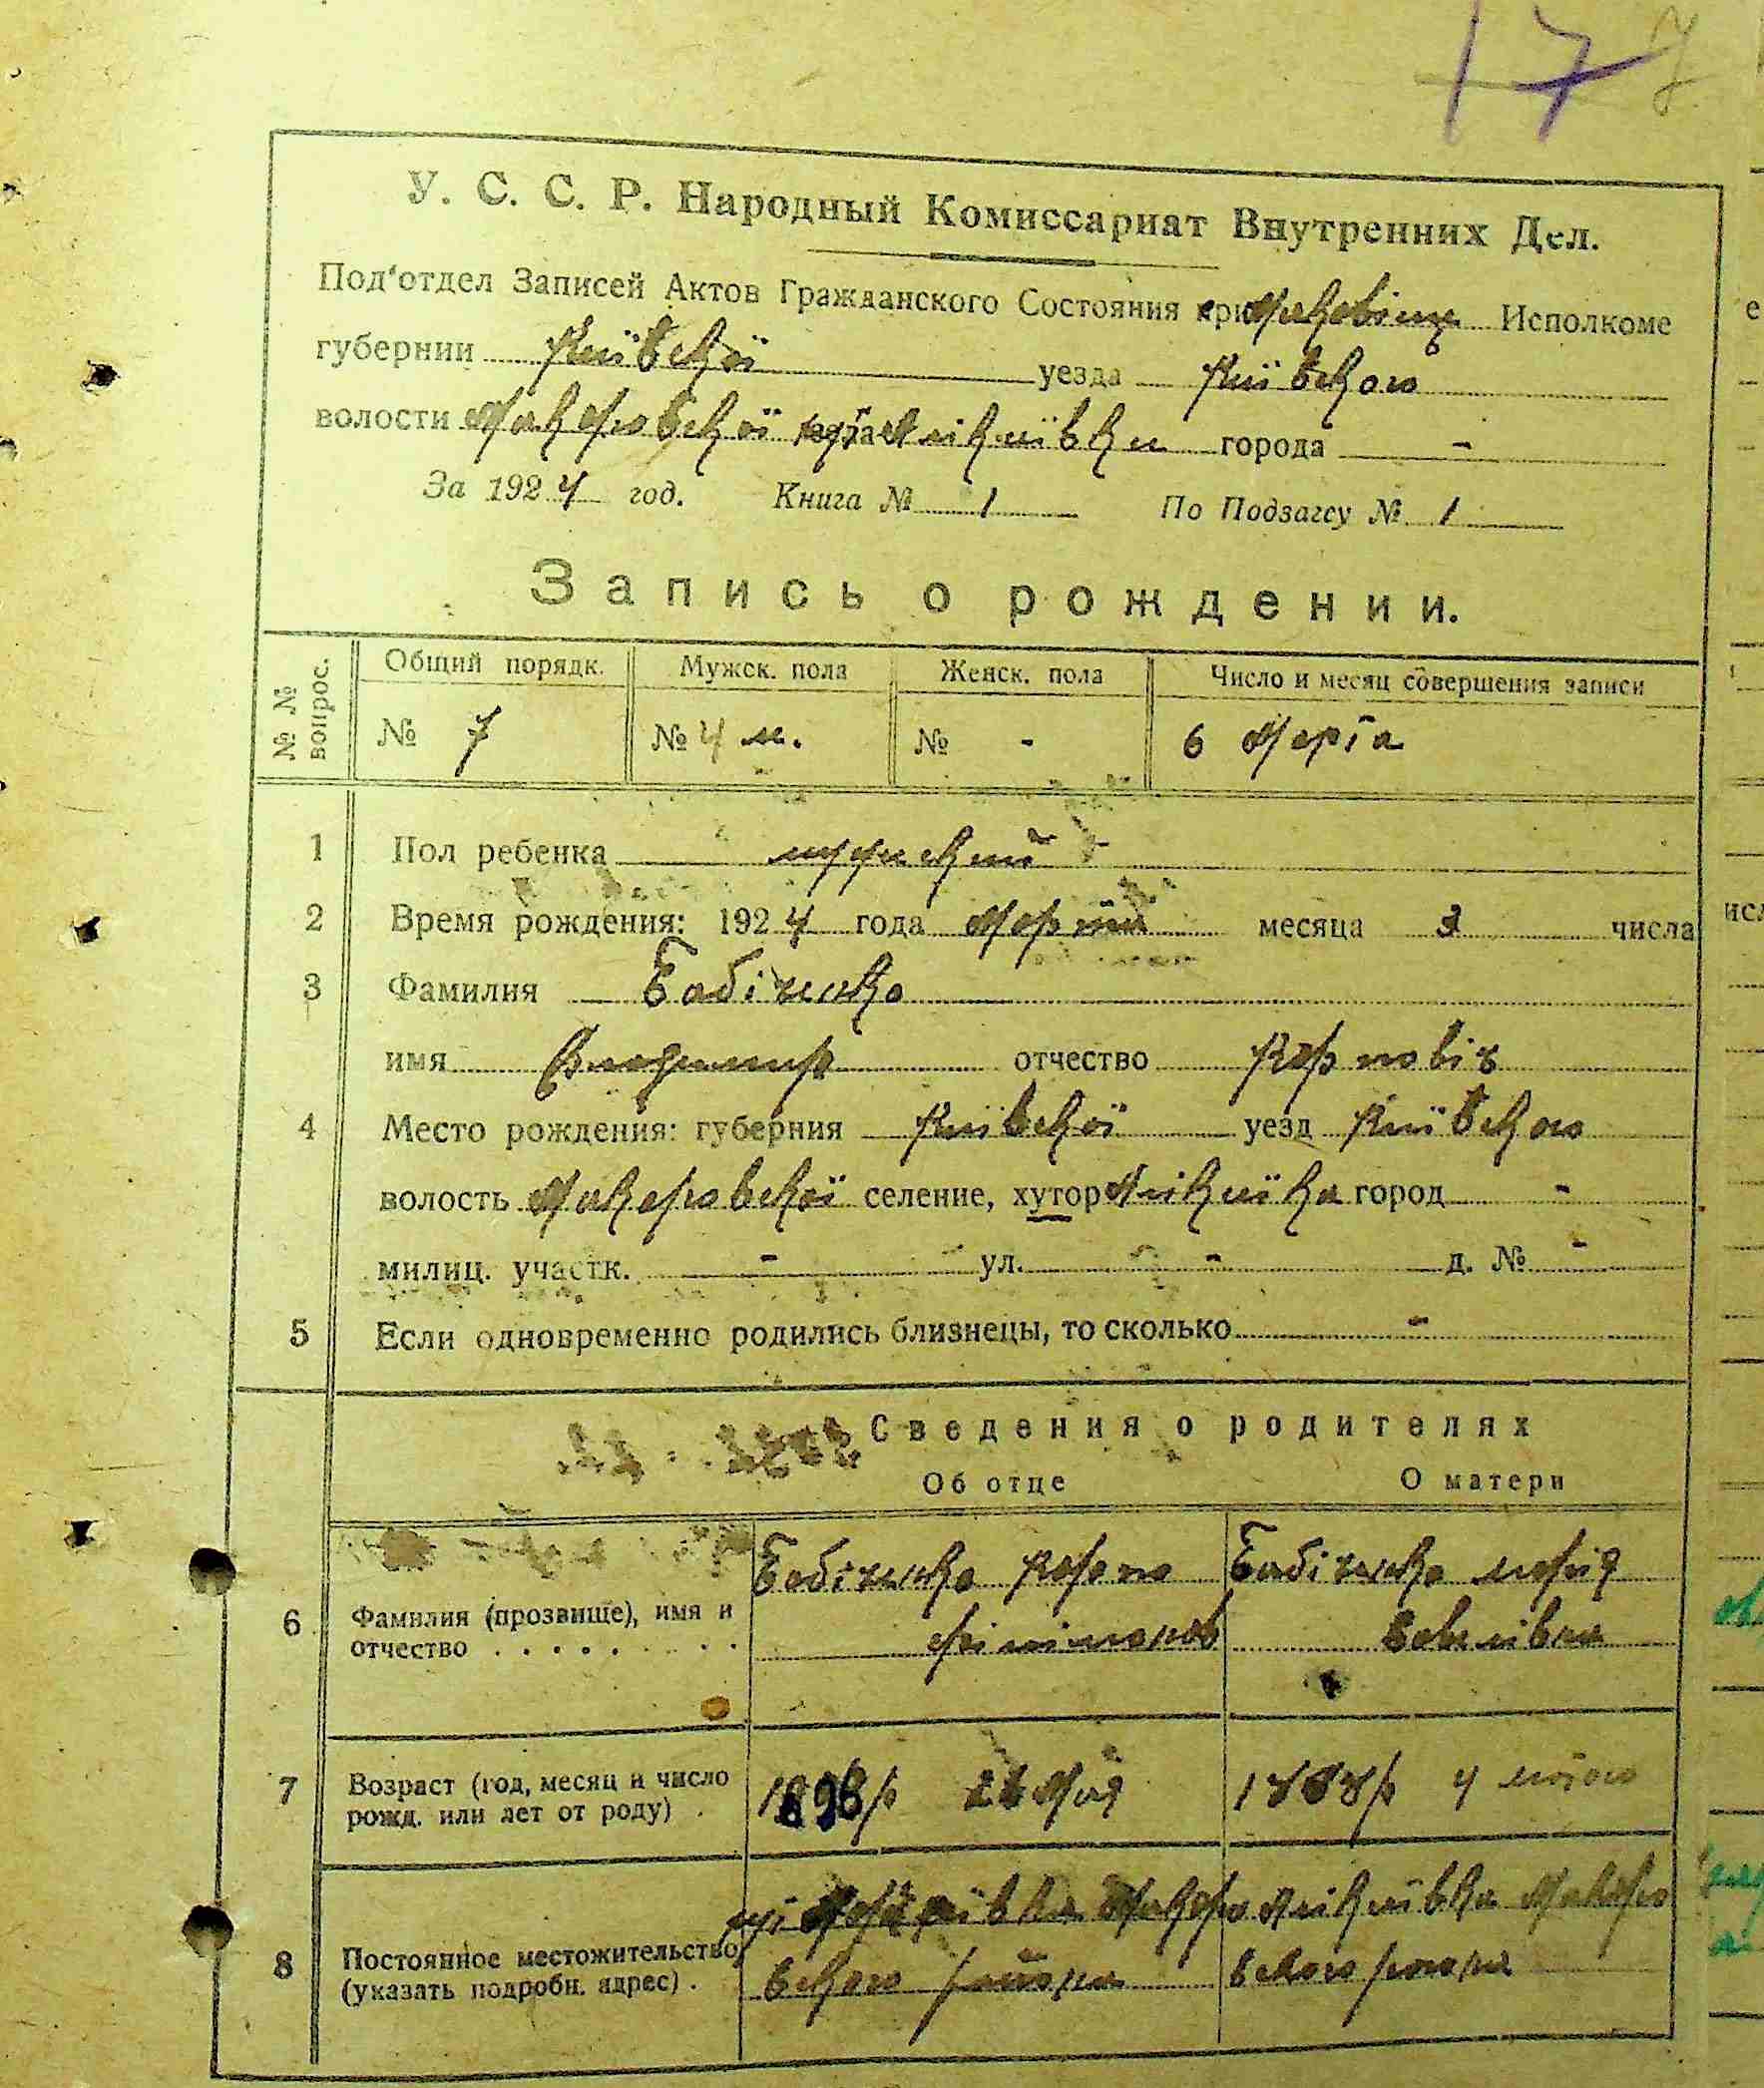 17 7
У. С. С. Р. Народный Комиссариат Внутренних Дел.
Под'отдел Записей Актов Гражданского Состояния при Исполкоме
губернии Киівскоі уезда Киівского
волости города -
За 1924 год. Книга № 1 По Подзагсу № 1
Запись о рождении.
№ № вопрос. Общий порядк. Мужск. пола Женск. пола Число и месяц совершения записи
№ 7 № 4 м. № - 6 Марта
1 Пол ребенка мужский
2 Время рождения: 1924 года Марта месяца 3 числа
3 Фамилия Бабіченко
имя Владимир отчество Карповіч
4 Место рождения: губерния Киівскоі уезд Киівского
волость Макаровскоі селение, хутор город -
милиц. участк. - ул. - д. № -
5 Если одновременно родились близнецы, то сколько -
Сведения о родителях
Об отце О матери
6 Фамилия (прозвище), имя и отчество Бабіченко Карпо Бабіченко Марія
7 Возраст (год, месяц и число рожд. или лет от роду) 1898р Мая 4
8 Постоянное местожительство (указать подробн. адрес) вского району вского району